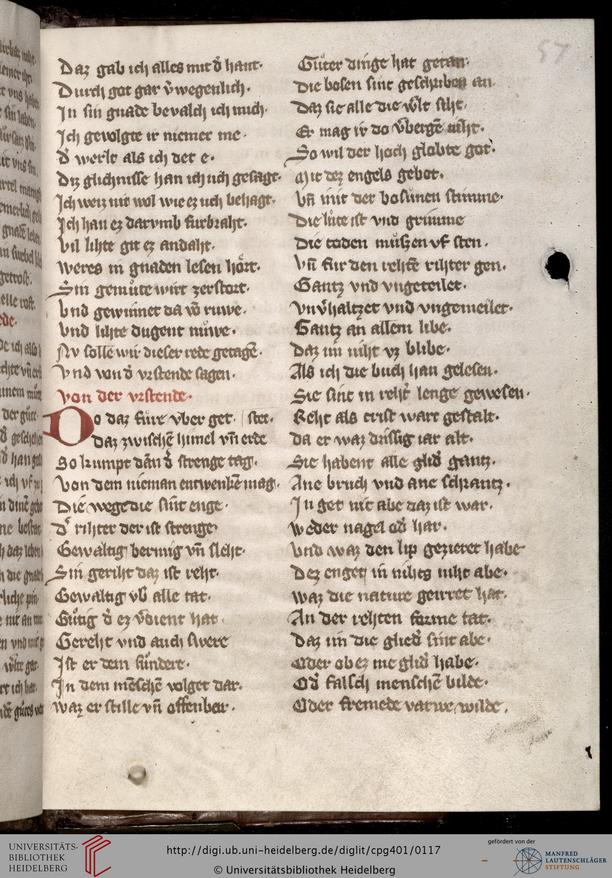 57
Daz gab ich alles mit d͛ hant·
Durch got gar v͛wegenlich·
In sin gnade bevalch ich mich·
Ich gevolgte ir niemer me·
d͛ werlt als ich det e·
Diz glichnisse han ich uch gesagt·
Ich weiz nit wol wie ez uch behagt·
Ich han ez darvmb furbraht·
Vil lihte git ez andaht·
Weres in gnaden lesen hört·
Sin gemüte wirt zerstort·
Vnd gewinnet da vō ruwe·
Vnd lihte dugent nuwe·
Nv solle wir dieser rede getagē·
Vnd von d͛ vrstende sagen·
Von der vrstende·
So daz fiure vber get· stet·
daz zwischē himel vn̄ erde
So kumpt dān d͛ strenge tag·
Von dem nieman entwenkē mag·
Die wege die sint enge·
D͛ rihter der ist strenge·
Gewaltig bermig vn̄ sleht·
Sin geriht daz ist reht·
Gewaltig vb͛ alle tat·
Gütig d͛ ez v͛dient hat·
Gereht vnd auch swere
Ist er dem sündere·
In dem mēschē volget dar·
Waz er stille vn̄ offenbar·
Guter dinge hat getan·
Die bosen sint geschriben an·
Daz sie alle die w͛lt siht·
Er mag ir do v͛bergē niht·
So wil der hoch globte got·
Mit dez engels gebot·
Vn̄ mit der bosunen stimme·
Die lute ist vnd grimme
Die toden muszen vf sten·
Vn̄ fur den rehtē rihter gen·
Gantz vnd vngeteilet·
Vnv͛haltzet vnd vngemeilet·
Gantz an allem libe·
Daz in niht vz blibe·
Als ich die buch han gelesen·
Sie sint in reht͛ lenge gewesen·
Reht als crist wart gestalt·
da er waz drissig iar alt·
Sie habent alle glid͛ gantz·
Ane bruch vnd ane schrantz·
In get nit abe daz ist war·
Weder nagel od͛ har·
Vnd waz den lip gezieret habe
Dez enget in nihts niht abe·
Waz die nature geirret hat·
An der rehten forme tat·
Daz im die glied͛ sint abe·
Oder ob ez me glid͛ habe·
Od͛ falsch menschen bilde·
Oder fremede varwe wilde·
UNIVERSITÄTS-
BIBLIOTHEK
HEIDELBERG
http://digi.ub.uni-heidelberg.de/diglit/cpg401/0117
© Universitätsbibliothek Heidelberg
gefördert von der
MANFRED
LAUTENSCHLÄGER
STIFTUNG